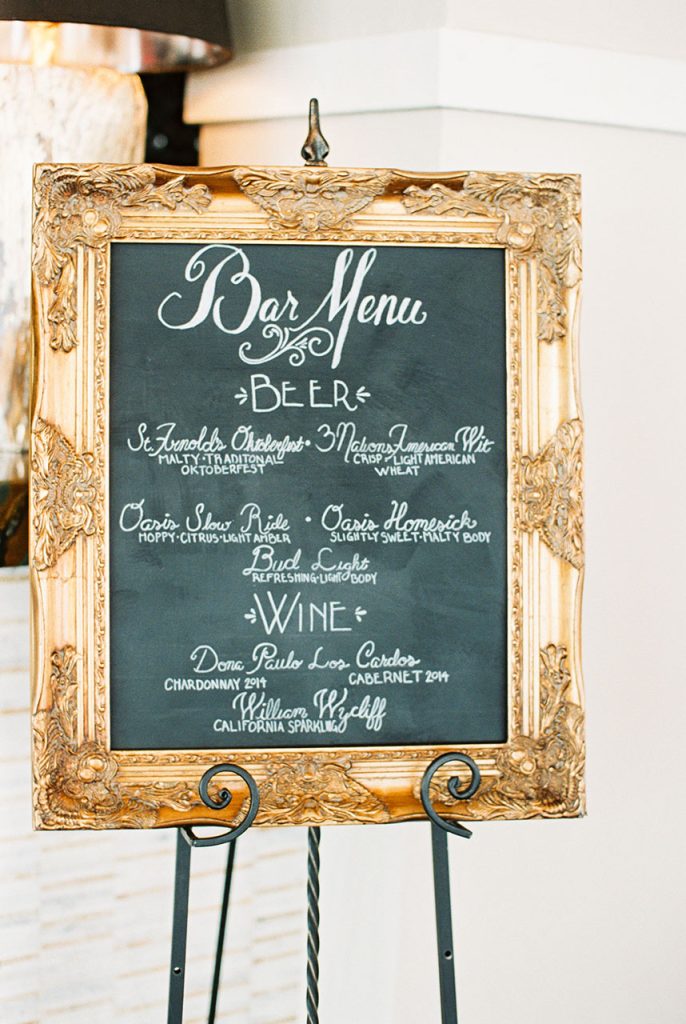 Bar Menu
BEER
St. Arnolds Oktoberfest • 3 Nations American Wit
MALTY • TRADITONAL CRISP • LIGHT AMERICAN
OKTOBERFEST WHEAT
Oasis Slow Ride • Oasis Homesick
HOPPY • CITRUS • LIGHT AMBER SLIGHTLY SWEET • MALTY BODY
Bud Light
REFRESHING • LIGHT BODY
WINE
Dona Paulo Los Cardos
CHARDONNAY 2014 CABERNET 2014
William Wycliff
CALIFORNIA SPARKLING